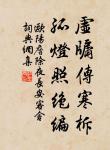 虛牖傳寒柝
孤燈照絶編
歐陽詹除夜長安客舍
詞典網集